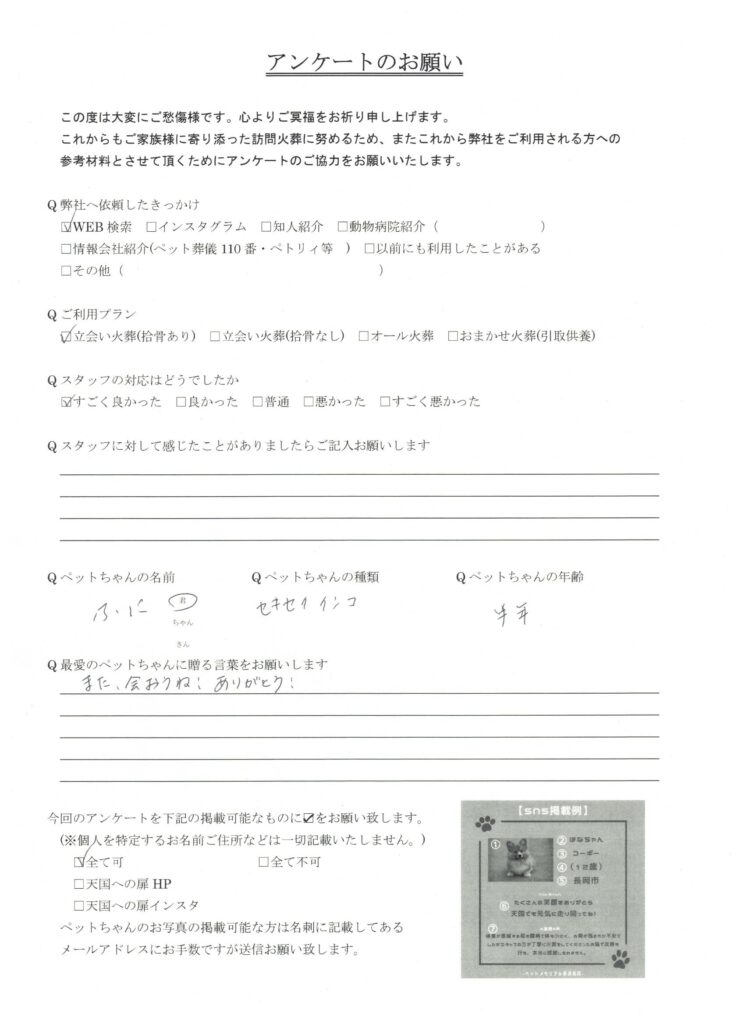 アンケートのお願い
この度は大変にご愁傷様です。心よりご冥福をお祈り申し上げます。
これからもご家族様に寄り添った訪問火葬に努めるため、またこれから弊社をご利用される方への
参考材料とさせて頂くためにアンケートのご協力をお願いいたします。
Q 弊社へ依頼したきっかけ
☑WEB 検索 □インスタグラム □知人紹介 □動物病院紹介（ ）
□情報会社紹介(ペット葬儀 110 番・ペトリィ等 ) □以前にも利用したことがある
□その他（ ）
Q ご利用プラン
☑立会い火葬(拾骨あり) □立会い火葬(拾骨なし) □オール火葬 □おまかせ火葬(引取供養)
Q スタッフの対応はどうでしたか
☑すごく良かった □良かった □普通 □悪かった □すごく悪かった
Q スタッフに対して感じたことがありましたらご記入お願いします
Q ペットちゃんの名前 Q ペットちゃんの種類 Q ペットちゃんの年齢
ふに 君 セキセイインコ 半年
ちゃん
さん
Q 最愛のペットちゃんに贈る言葉をお願いします
また、会おうね! ありがとう!
今回のアンケートを下記の掲載可能なものに☑をお願い致します。
(※個人を特定するお名前ご住所などは一切記載いたしません。)
☑全て可 □全て不可
□天国への扉 HP
□天国への扉インスタ
ペットちゃんのお写真の掲載可能な方は名刺に記載してある
メールアドレスにお手数ですが送信お願い致します。
【sns掲載例】
① ② はなちゃん
③ コーギー
④ (12歳)
⑤ 長岡市
⑥ たくさんの笑顔をありがとう
天国でも元気に走り回ってね!
⑦